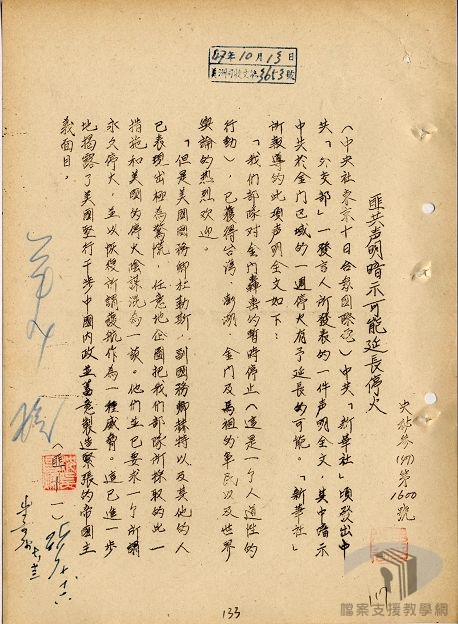 47年10月13日
美洲司收文第3653號
央秘參(47)第1600號
匪共声明暗示可能延長停火
(中央社東京十日合眾國際電)中共「新華社」頃發出中
共「外交部」一發言人所發表的一件声明全文,其中暗示
中共於金門已域的一週停火有予延長的可能。「新華社」
所報導的此項声明全文如下:
「我们部隊对金門轟轰的暫時停止(這是一个人道性的
行動),已獲得台湾,澎湖,金門及馬祖的軍民以及世界
輿論的热烈欢迎。
「但是美国國務卿杜勒斯,副國務卿赫特以及其他的人
已表現出極為驚慌,任意地企圖把我们部隊所採取的此一
措施和美國的停火陰謀混為一頭。他们並已要求一个所謂
永久停火,並以恢復所謂護航作為一種威脅。這已進一步
地揭露了美国坚行干涉中國內政並蓄意製造緊張的帝國主
義面目。
133
檔案支援教學網